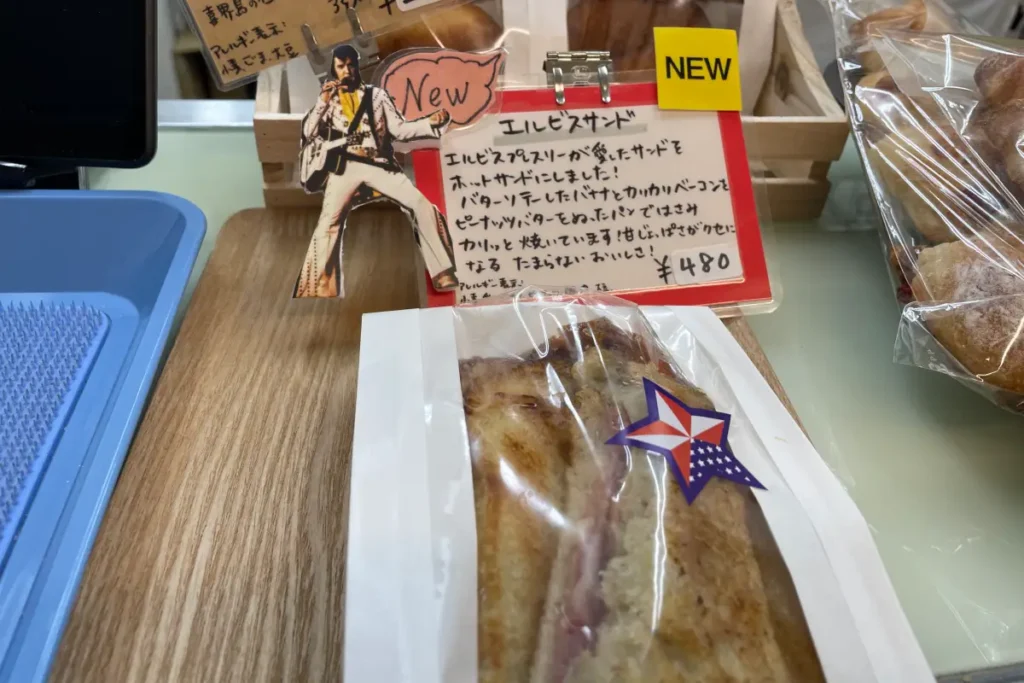 喜界島の
アレルギー表示:
小麦 ごま 大豆
New
NEW
エルビスサンド
エルビスプレスリーが愛したサンドを
ホットサンドにしました!
バターソテーしたバナナとカリカリベーコンを
ピーナッツバターをぬったパンではさみ
カリッと焼いています!甘じょっぱさがクセに
なる たまらないおいしさ!
¥480
アレルギー表示: